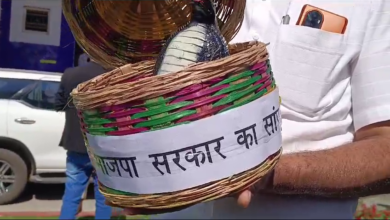 भाजपा सरकार का सां